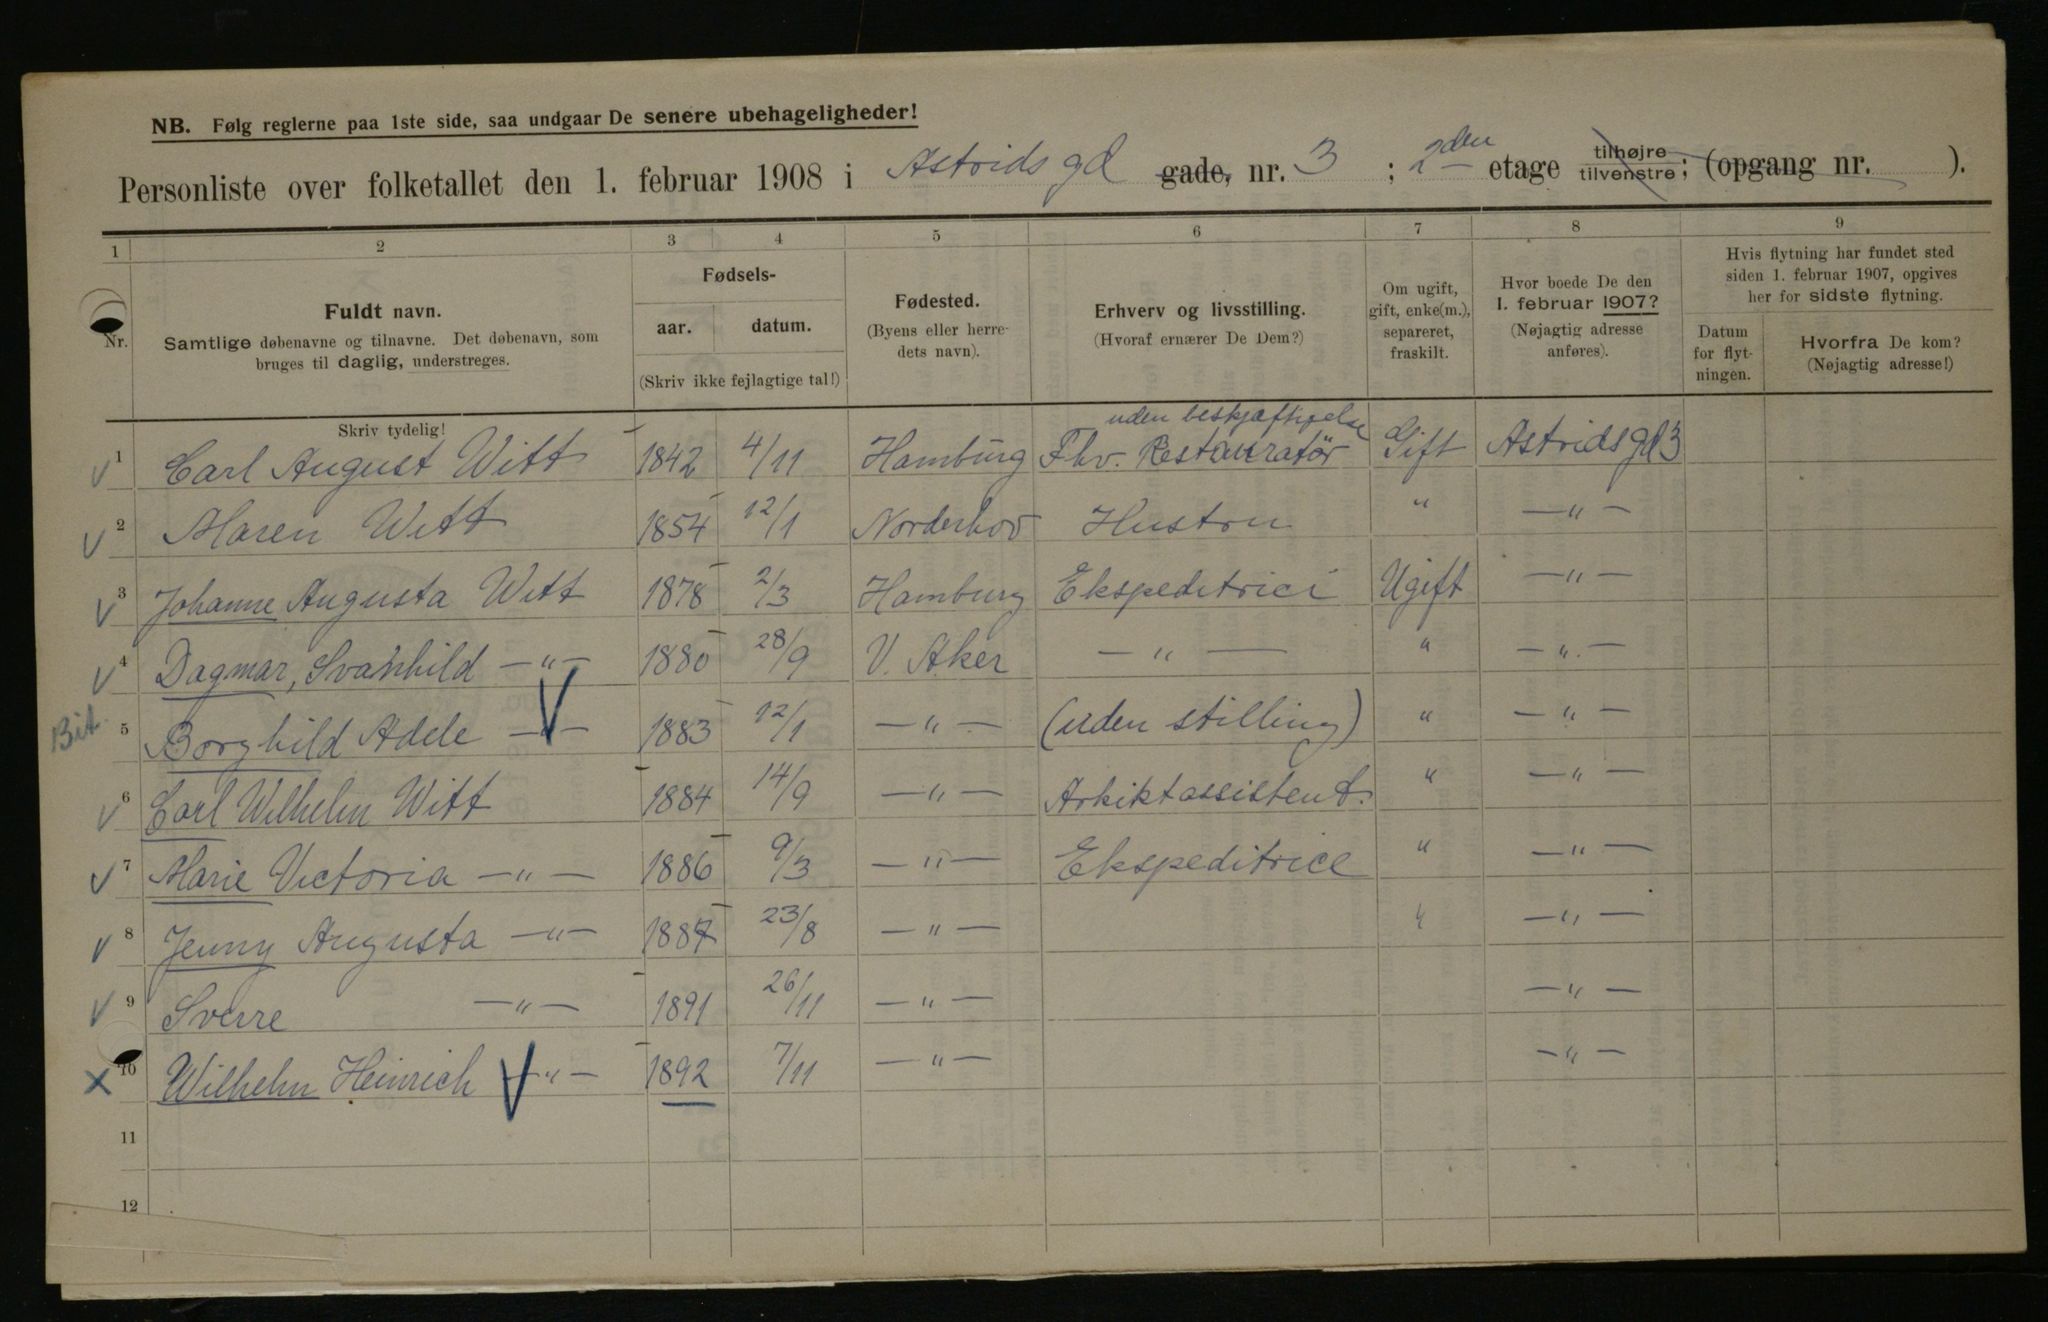 NB. Følg reglerne paa 1ste side, saa undgaar De senere ubehageligheder!
Personliste over folketallet den 1. februar 1908 i Astrids gd gade, nr. 3 ; 2den etage tilhøjre tilvenstre; (opgang nr. ).
1 2 3 4 5 6 7 8 9
Nr.
Fuldt navn.
Samtlige døbenavne og tilnavne. Det døbenavn, som
bruges til daglig, understreges.
Skriv tydelig!
Fødsels-
aar. datum.
(Skriv ikke fejlagtige tal!)
Fødested.
(Byens eller herre-
dets navn).
Erhverv og livsstilling.
(Hvoraf ernærer De Dem?)
Om ugift,
gift, enke(m.),
separeret,
fraskilt.
Hvor boede De den
1. februar 1907?
(Nøjagtig adresse
anføres).
Hvis flytning har fundet sted
siden 1. februar 1907, opgives
her for sidste flytning.
Datum
for flyt-
ningen.
Hvorfra De kom?
(Nøjagtig adresse!)
uden beskjæftigelse
V 1 Carl August Witt 1842 4/11 Hamburg Fhv. Restauratör Gift Astrids gd 3
V 2 Maren Witt 1854 12/1 Norderhov Hustru " —"—
V 3 Johanne Augusta Witt 1878 2/3 Hamburg Ekspeditrici Ugift —"—
V 4 Dagmar, Svanhild —"— 1880 28/9 V. Aker —"— " —"—
Bit. 5 Borghild Adele —"— V 1883 12/1 —"— (uden stilling) " —"—
V 6 Carl Wilhelm Witt 1884 14/9 —"— Arkiktassistent. " —"—
V 7 Marie Victoria —"— 1886 9/3 —"— Ekspeditrice " —"—
V 8 Jenny Augusta —"— 1887 23/8 —"— " —"—
V 9 Sverre —"— 1891 26/11 —"— —"—
X 10 Wilhelm Heinrich V —"— 1892 7/11 —"— —"—
11
12